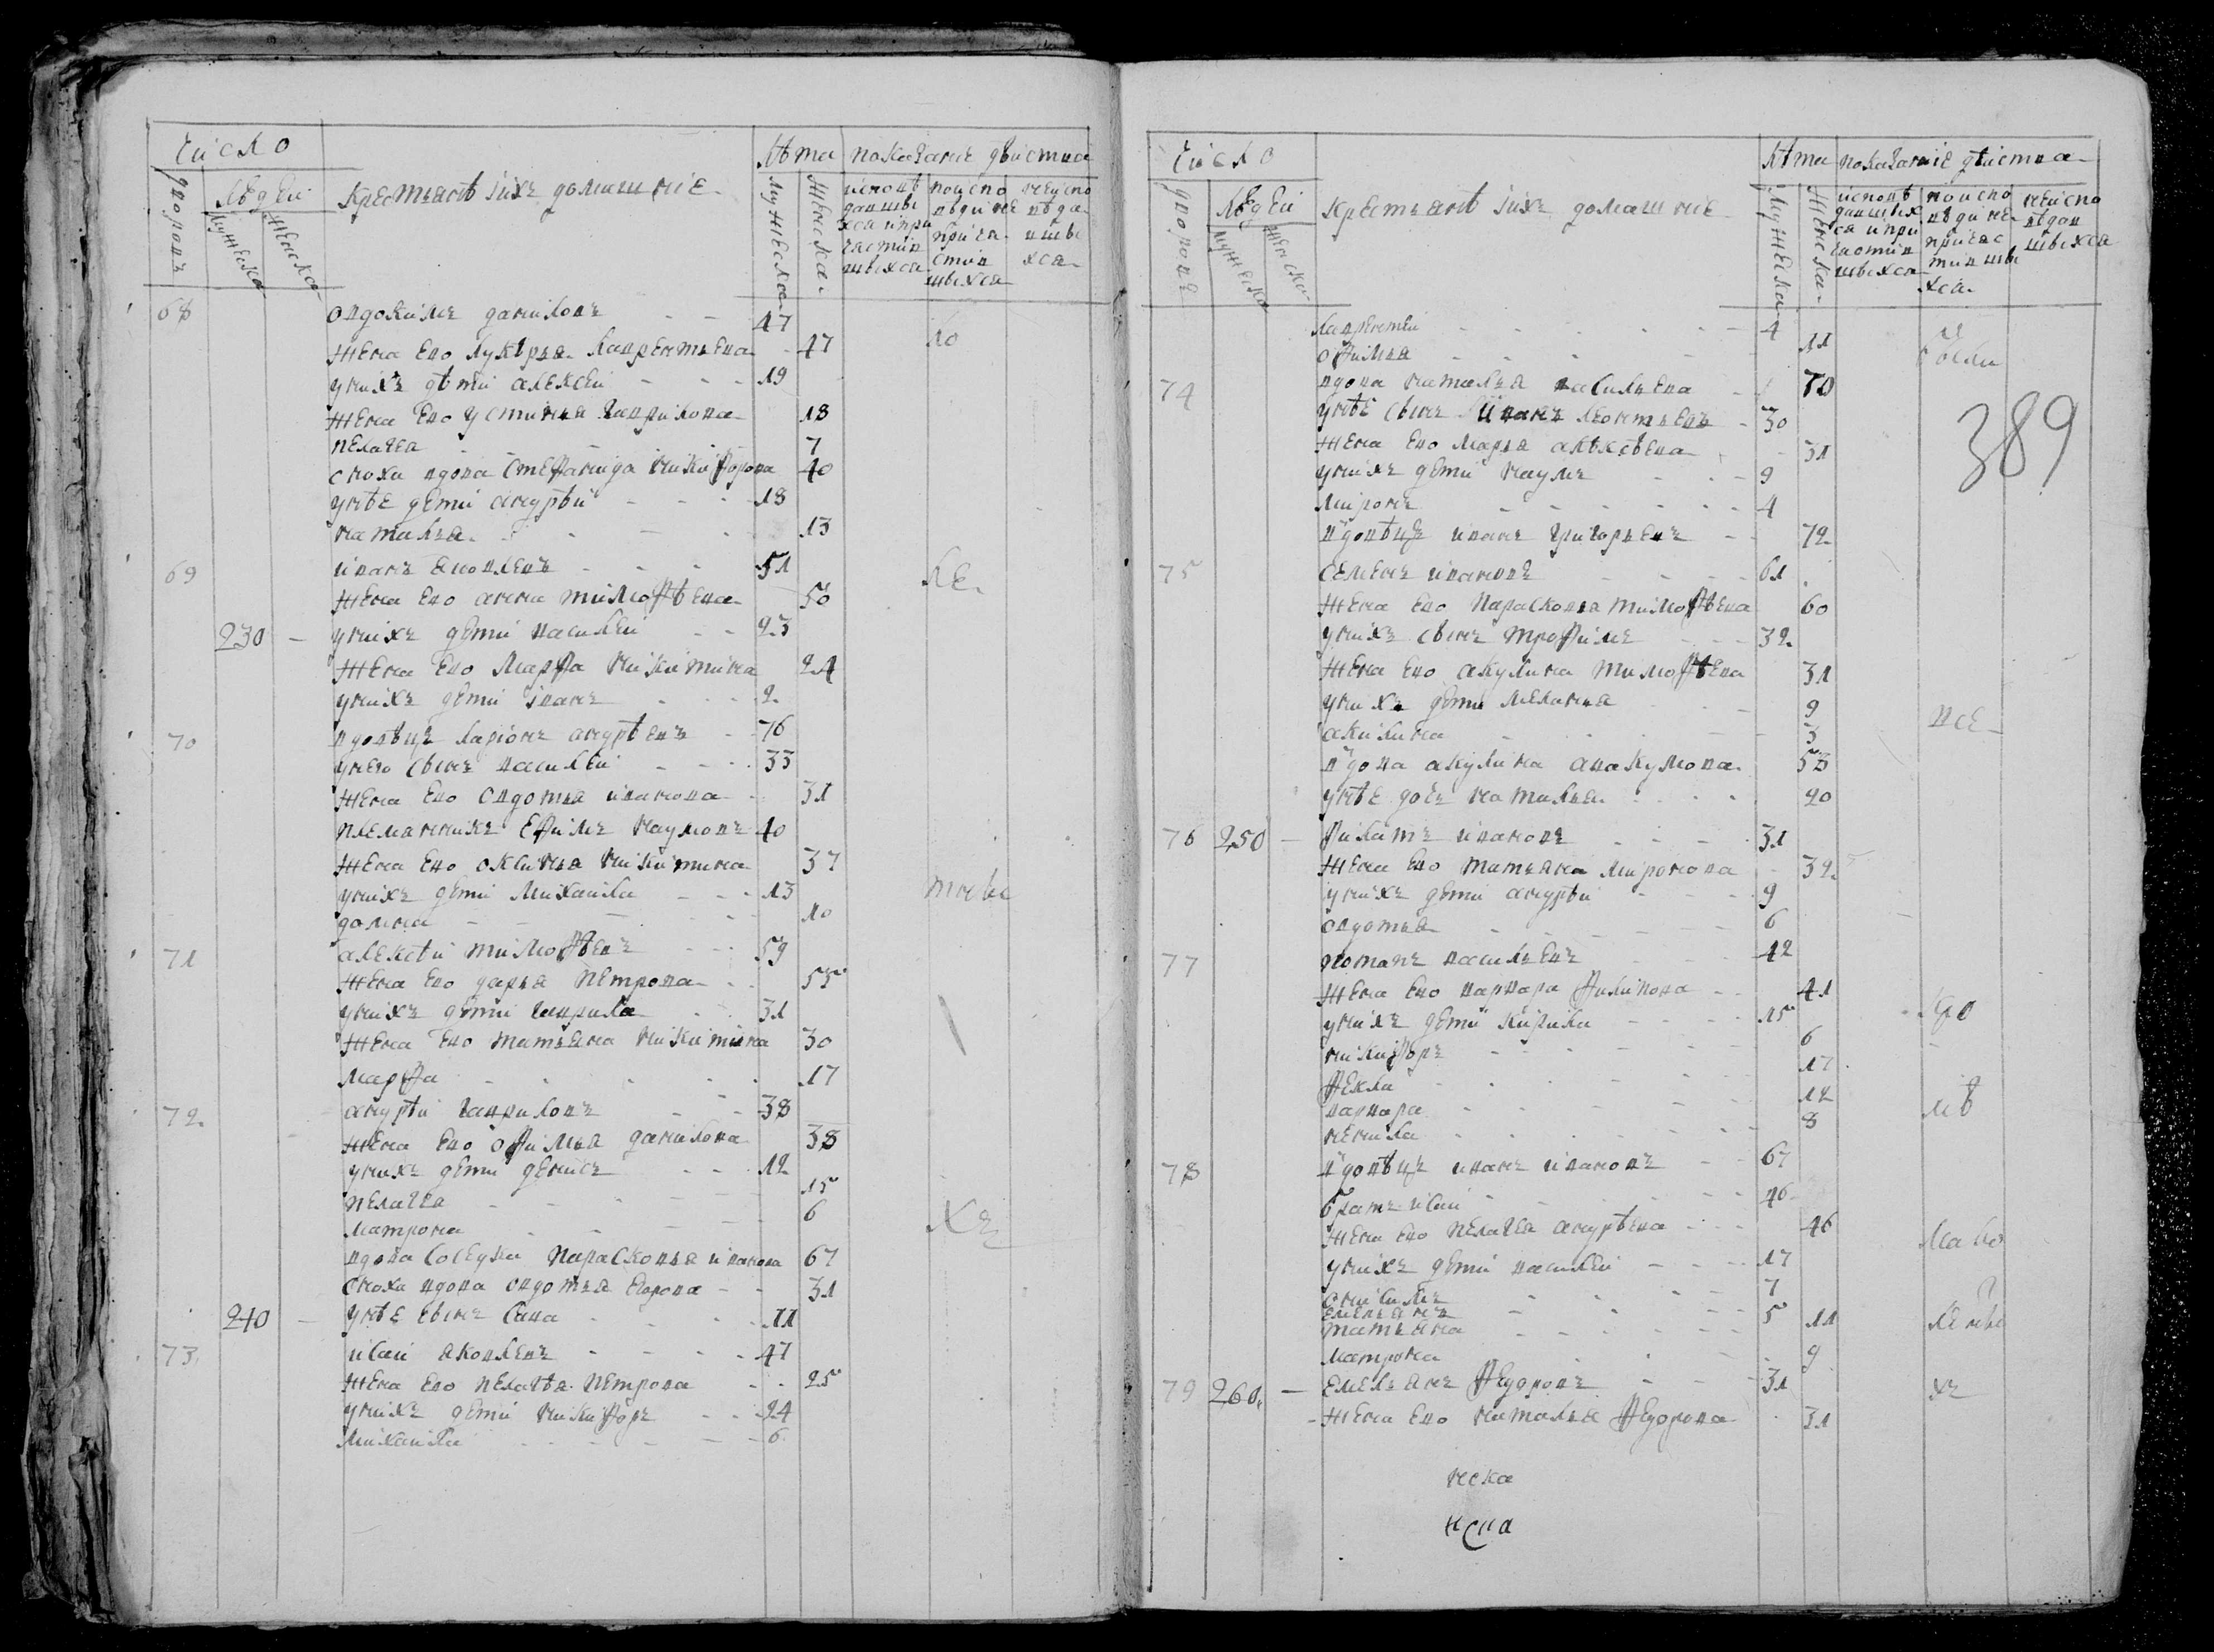 Число
Лѣта показание дѣиства
дворовъ
Людеи
мужеска
женска
Крестьянѣ iихъ домашнiе
мужеска
женска
исповѣдавшыхся и причастившыхся
по исповѣди не причастившыхся
не исповѣдавшыхся
68 Овдокимъ даниловъ 47
жена ево лукѣрья лаврентьева 47
у нихъ дѣти алексеи 19
жена ево устинья гаврилова 18
пелагея 7
сноха вдова стефанида никифорова 40
у нѣе дети андрѣи 18
наталья 13
69 иванъ яковлевъ 51
жена ево анна тимофѣева 50
230 у нихъ дети василеи 23
жена ево марфа никитина 24
у нихъ дети iванъ 2
70 вдовѣцъ ларiонъ андрѣевъ 76
у него сынъ василеи 33
жена ево овдотья иванова 31
племянникъ ефимъ наумовъ 40
жена ево оксинья никитина 37
у нихъ дети михаила 13
домна 10
71 алексѣи тимофѣевъ 59
жена ево дарья петрова 55
у нихъ дети гаврила 31
жена ево татьяна никитина 30
марфа 17
72 андрѣи гавриловъ 38
жена ево офимья данилова 38
у нихъ дети денисъ 12
пелагея 15
матрона 6
вдова сосѣдка парасковья иванова 67
сноха вдова овдотья егорова 31
240 у нѣе сынъ сава 11
73 исаи яковлевъ 47
жена ево пелагѣя петрова 25
у нихъ дети никифоръ 24
михаила 6
Число
Лѣта показание дѣиства
дворовъ
Людеи
мужеска
женска
крестьянѣ iихъ домашнiе
мужеска
женска
исповѣдавшыхся и причастившыхся
по исповѣди не причастившыхся
не исповѣдавшыхся
389
лаврентеи 4
офимья 11
74 вдова наталья васильева 70
у нѣе сынъ иванъ леонтьевъ 30
жена ево марья алѣксѣева 31
у нихъ дети наумъ 9
миронъ 4
вдовѣцъ иванъ григорьевъ 72
75 семенъ ивановъ 61
жена ево парасковья тимофѣева 60
у нихъ сынъ трофимъ 32
жена ево акулина тимофѣева 31
у нихъ дети меланья 9
акилина 3
вдова акулина авакумова 53
у нѣе дочь наталья 20
76 250 филатъ ивановъ 31
жена ево татьяна миронова 32
у нихъ дети андрѣи 9
овдотья 6
77 потапъ васильевъ 42
жена ево варвара филипова 41
у нихъ дети кирила 15
никифоръ 6
фекла 17
варвара 12
ненила 8
78 вдовѣцъ иванъ ивановъ 67
братъ исаи 46
жена ево пелагея андрѣева 46
у нихъ дети василеи 17
анисимъ 7
емельянъ 5
татьяна 11
матрона 9
79 260 емельянъ федоровъ 31
жена ево наталья федорова 31